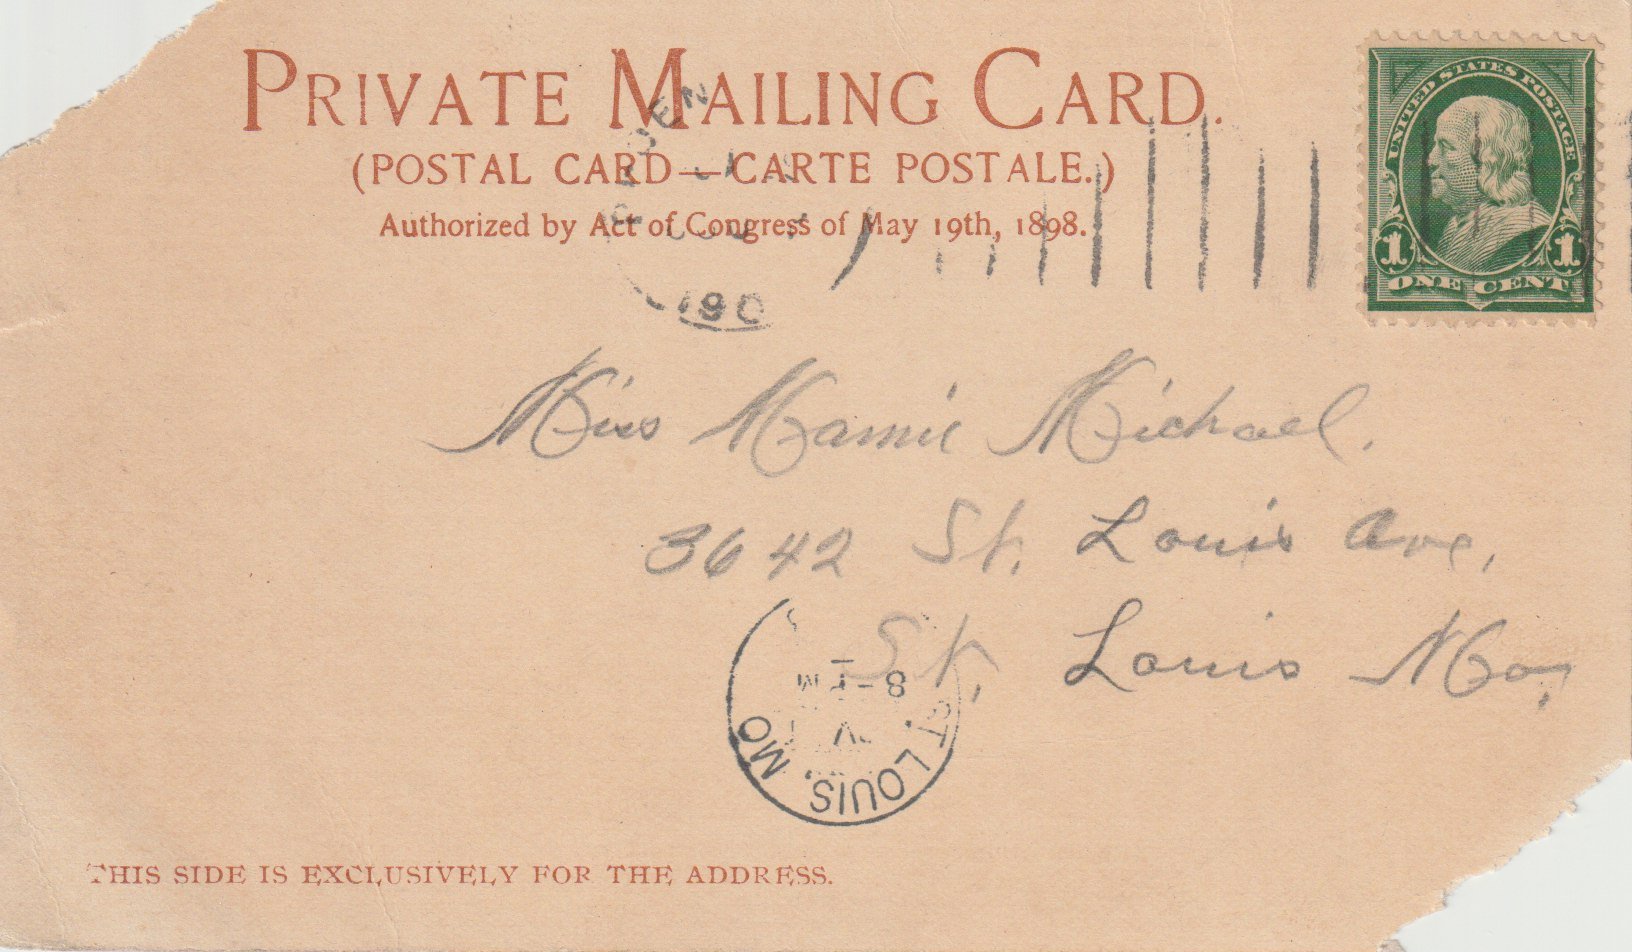 PRIVATE MAILING CARD.
(POSTAL CARD—CARTE POSTALE.)
Authorized by Act of Congress of May 19th, 1898.
UNITED STATES POSTAGE
1 1
ONE CENT
190
Miss Mamie Michael.
3642 St. Louis Ave,
St. Louis Mo,
8 - PM
ST. LOUIS, MO
THIS SIDE IS EXCLUSIVELY FOR THE ADDRESS.